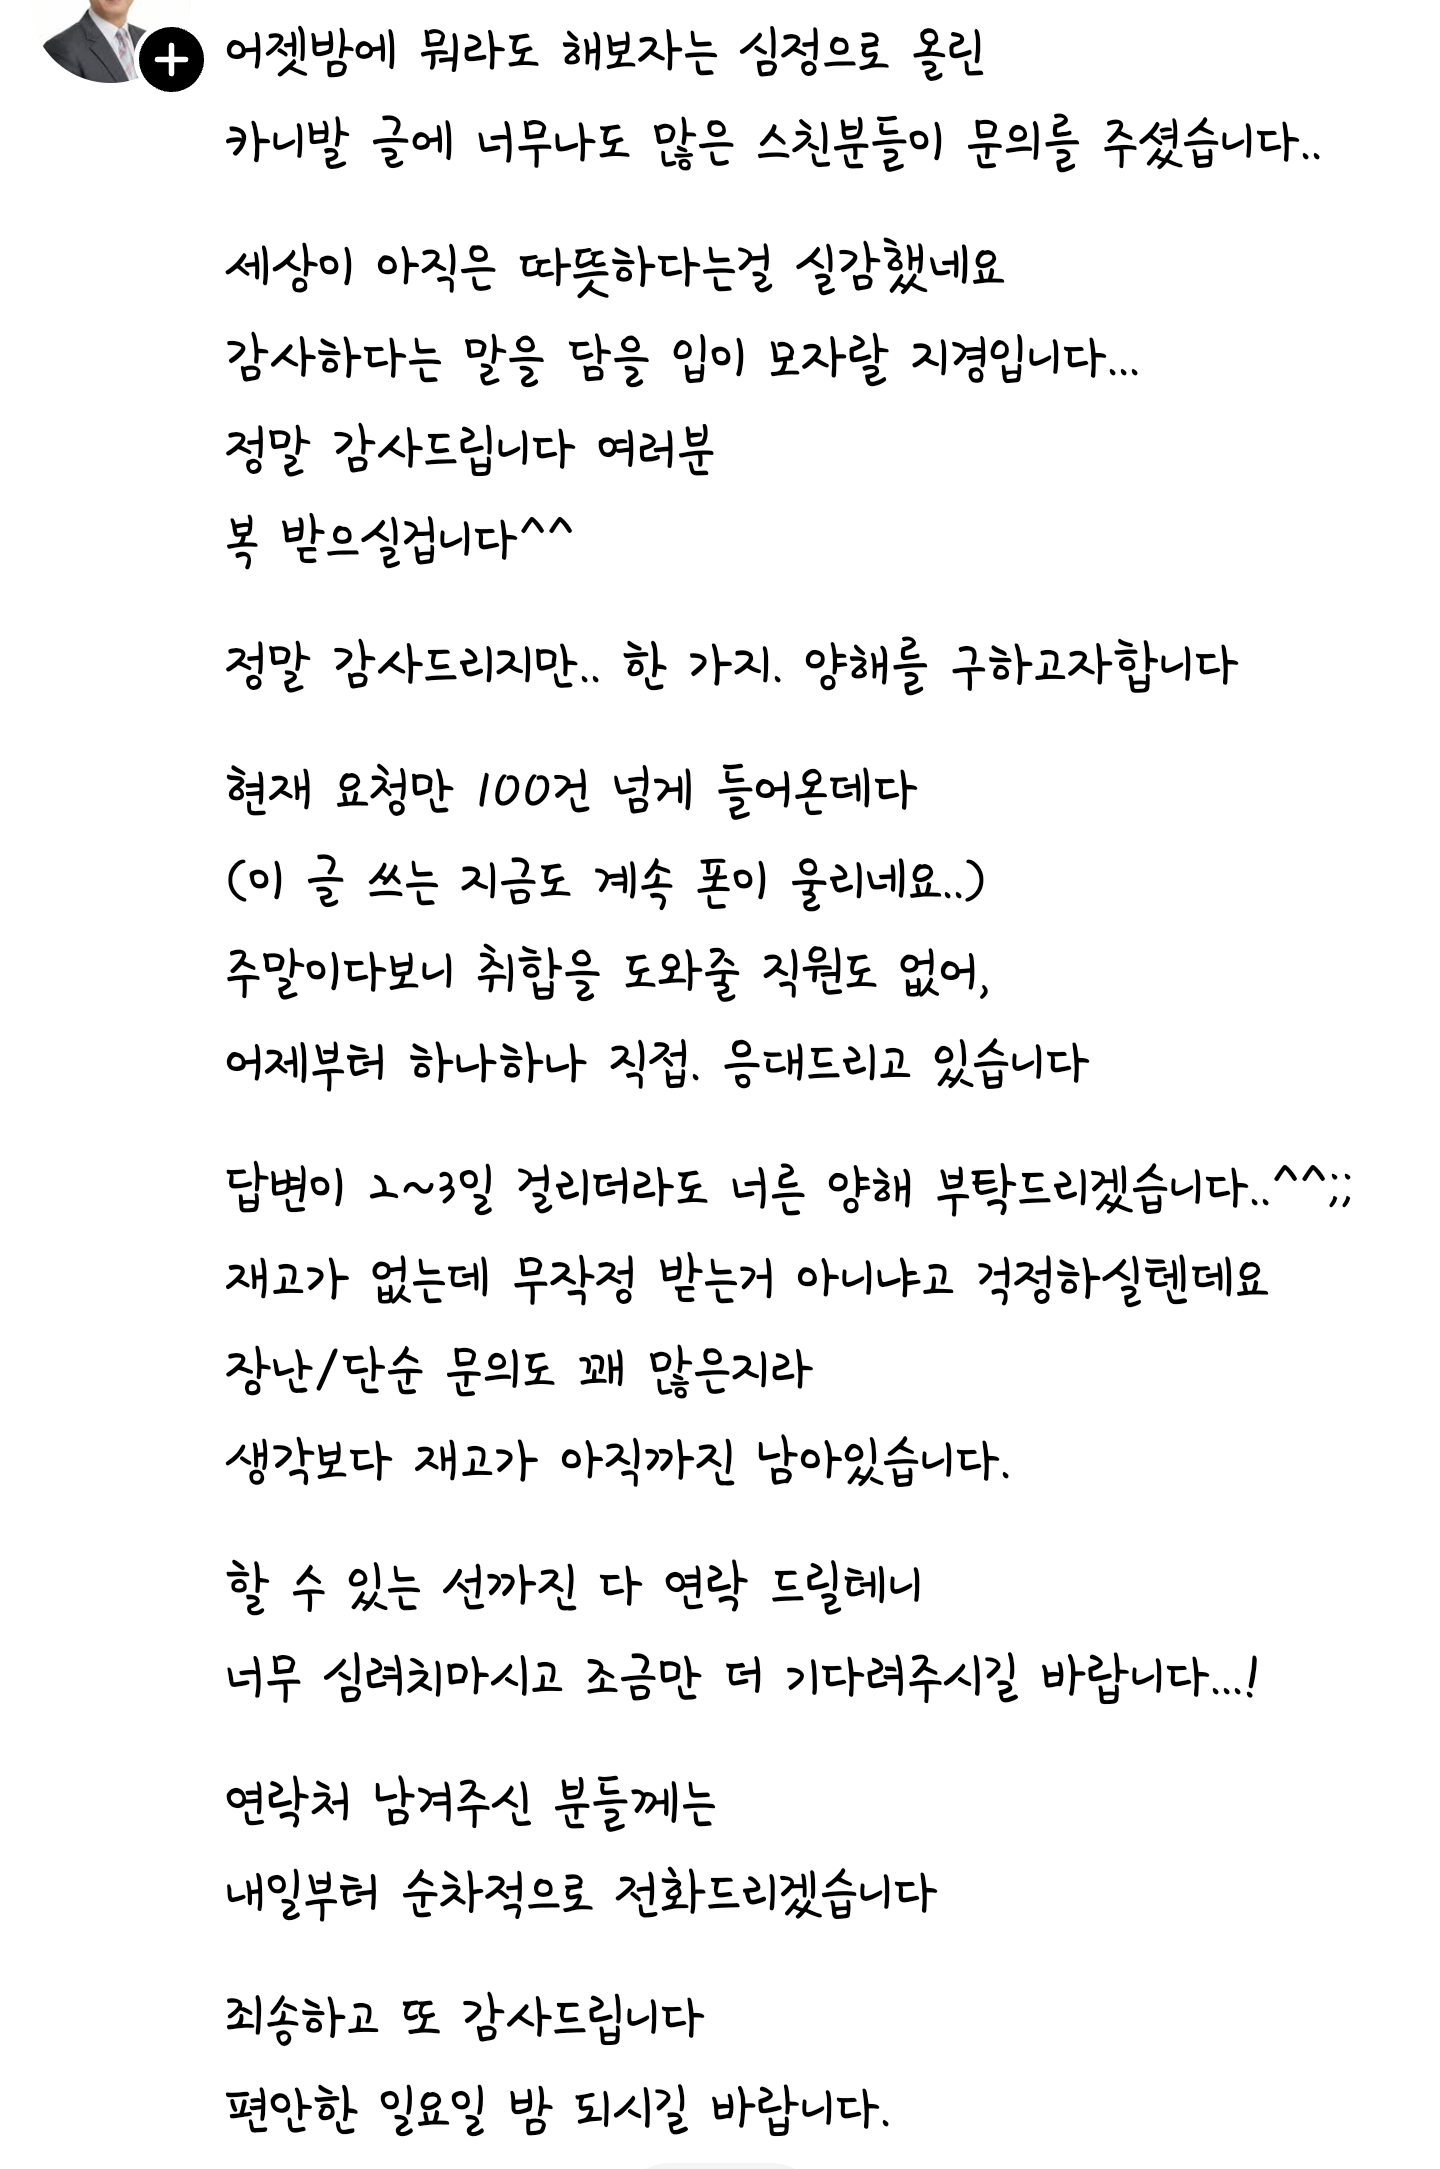 어젯밤에 뭐라도 해보자는 심정으로 올린
카니발 글에 너무나도 많은 스친분들이 문의를 주셨습니다..
세상이 아직은 따뜻하다는걸 실감했네요
감사하다는 말을 담을 입이 모자랄 지경입니다...
정말 감사드립니다 여러분
복 받으실겁니다^^
정말 감사드리지만.. 한 가지. 양해를 구하고자합니다
현재 요청만 100건 넘게 들어온데다
(이 글 쓰는 지금도 계속 폰이 울리네요..)
주말이다보니 취합을 도와줄 직원도 없어,
어제부터 하나하나 직접. 응대드리고 있습니다
답변이 2~3일 걸리더라도 너른 양해 부탁드리겠습니다..^^;;
재고가 없는데 무작정 받는거 아니냐고 걱정하실텐데요
장난/단순 문의도 꽤 많은지라
생각보다 재고가 아직까진 남아있습니다.
할 수 있는 선까진 다 연락 드릴테니
너무 심려치마시고 조금만 더 기다려주시길 바랍니다...!
연락처 남겨주신 분들께는
내일부터 순차적으로 전화드리겠습니다
죄송하고 또 감사드립니다
편안한 일요일 밤 되시길 바랍니다.